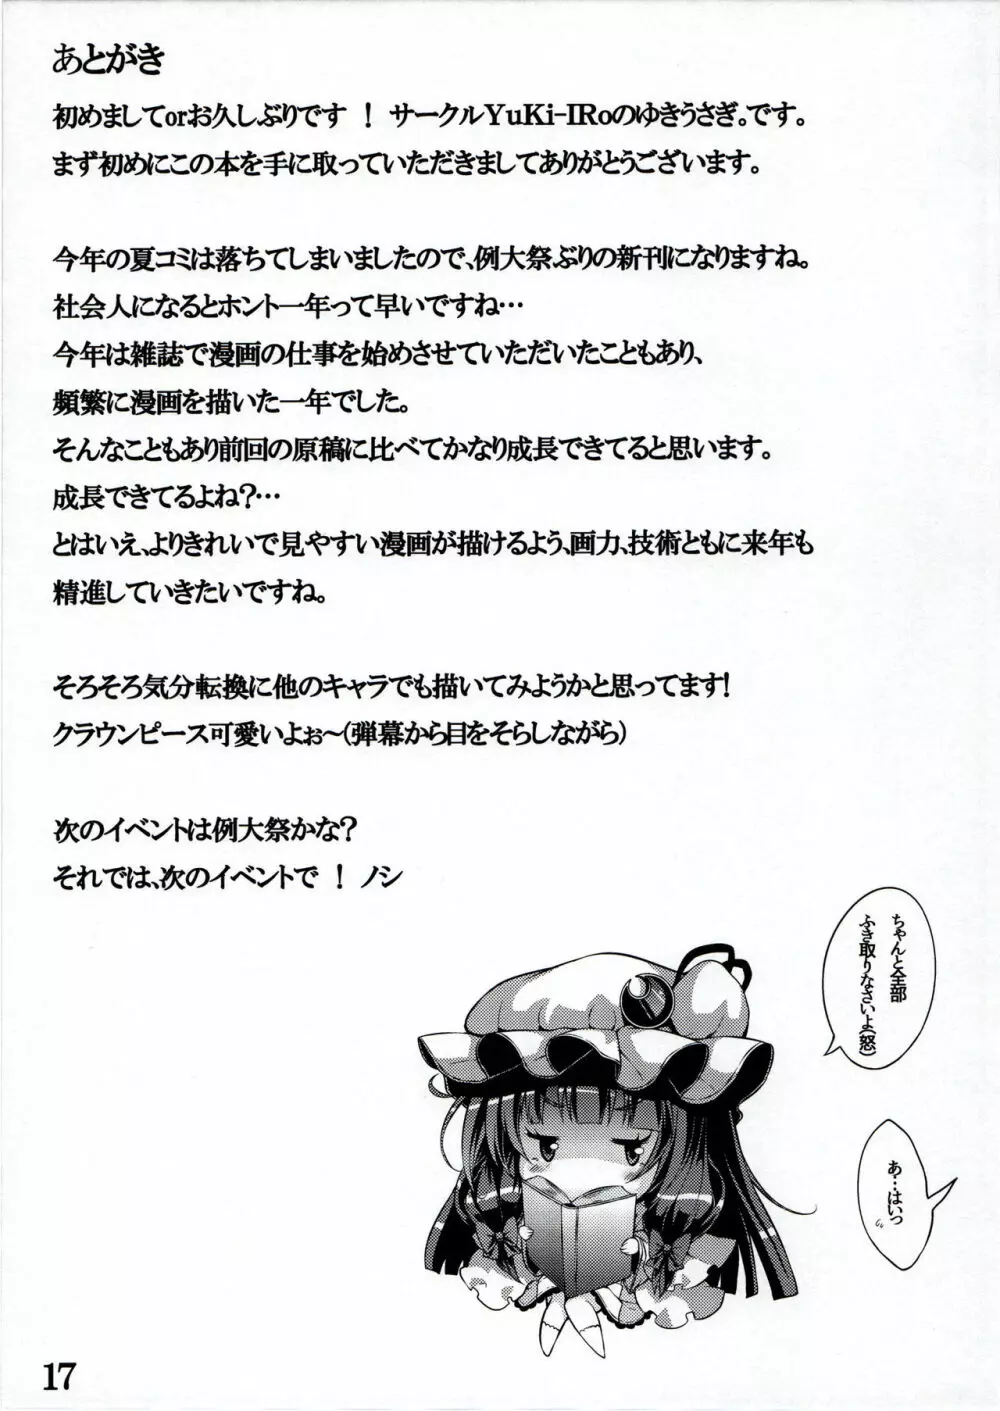 あとがき
初めましてorお久しぶりです ! サークルYuKi-IRoのゆきうさぎ。です。
まず初めにこの本を手に取っていただきましてありがとうございます。
今年の夏コミは落ちてしまいましたので、例大祭ぶりの新刊になりますね。
社会人になるとホント一年って早いですね…
今年は雑誌で漫画の仕事を始めさせていただいたこともあり、
頻繁に漫画を描いた一年でした。
そんなこともあり前回の原稿に比べてかなり成長できてると思います。
成長できてるよね?…
とはいえ、よりきれいで見やすい漫画が描けるよう、画力、技術ともに来年も
精進していきたいですね。
そろそろ気分転換に他のキャラでも描いてみようかと思ってます!
クラウンピース可愛いよぉ～(弾幕から目をそらしながら)
次のイベントは例大祭かな?
それでは、次のイベントで ! ノシ
ちゃんと全部
ふき取りなさいよ(怒)
あ…はいっ
17